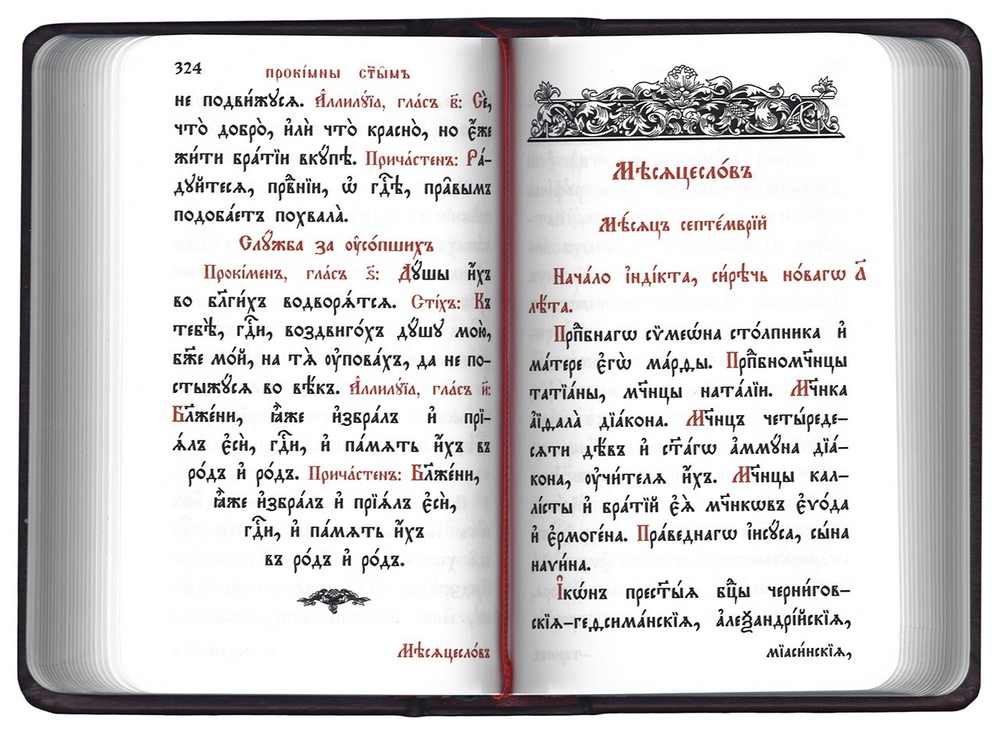 324
прокі́мны ст҃ы̑мъ
не подви́жꙋсѧ. А҆ллилꙋ́їа, гла́съ в҃: Сѐ,
что̀ добро̀, и҆лѝ что̀ красно̀, но є҆́же
жи́ти бра́тїи вкꙋ́пѣ. Прича́стенъ: Ра́-
дꙋйтесѧ, првⷣнїи, ѡ҆ гдⷭ҇ѣ, пра̑вымъ
подоба́етъ похвала̀.
Слꙋ́жба за ᲂу҆со́пшихъ
Проки́менъ, гла́съ ѕ҃: Дꙋ́шы и҆́хъ
во бл҃ги́хъ водворѧ́тсѧ. Сті́хъ: Къ
тебѣ̀, гдⷭ҇и, воздвиго́хъ дꙋ́шꙋ мою̀,
бж҃е мо́й, на тѧ̀ ᲂу҆пова́хъ, да не по-
стыжꙋ́сѧ во вѣ́къ. А҆ллилꙋ́їа, гла́съ и҃:
Бл҃же́ни, ꙗ҆̀же и҆збра́лъ и҆ прїѧ́-
ѧ́лъ є҆сѝ, гдⷭ҇и, и҆ па́мѧть и҆́хъ въ
ро́дъ и҆ ро́дъ. Прича́стенъ: Бл҃же́ни,
ꙗ҆̀же и҆збра́лъ и҆ прїѧ́лъ є҆сѝ,
гдⷭ҇и, и҆ па́мѧть и҆́хъ
въ ро́дъ и҆ ро́дъ.
Мѣсѧцесло́въ
Мѣсѧцесло́въ
Мѣ́сѧцъ септе́мврїй
Нача́ло і҆нді́кта, си́рѣчь но́вагѡ а҃
лѣ́та.
Прпⷣбнагѡ сѷмеѡ́на сто́лпника и҆
ма́тере є҆гѡ̀ ма́рѳы. Прпⷣбномч҃нцы
татїа́ны, мч҃нцы ната́лїи. Мч҃нка
а҆їѳала̀ дїа́кона. Мч҃нцъ четы́реде-
сѧти дѣ́въ и҆ ст҃а́гѡ а҆ммꙋ́на дїа́-
кона, ᲂу҆чи́телѧ и҆́хъ. Мч҃нцы кал-
лі́сты и҆ бра́тїй є҆ѧ̀ мч҃нкѡвъ є҆ѵо́да
и҆ є҆рмоге́на. Пра́веднагѡ і҆исꙋ́са, сы́на
наѵи́на.
І҆кѡ́нъ прест҃ы́ѧ бцⷣы черни́гов-
скїѧ-геѳсима́нскїѧ, а҆леѯандрі́йскїѧ,
мїаси́нскїѧ,